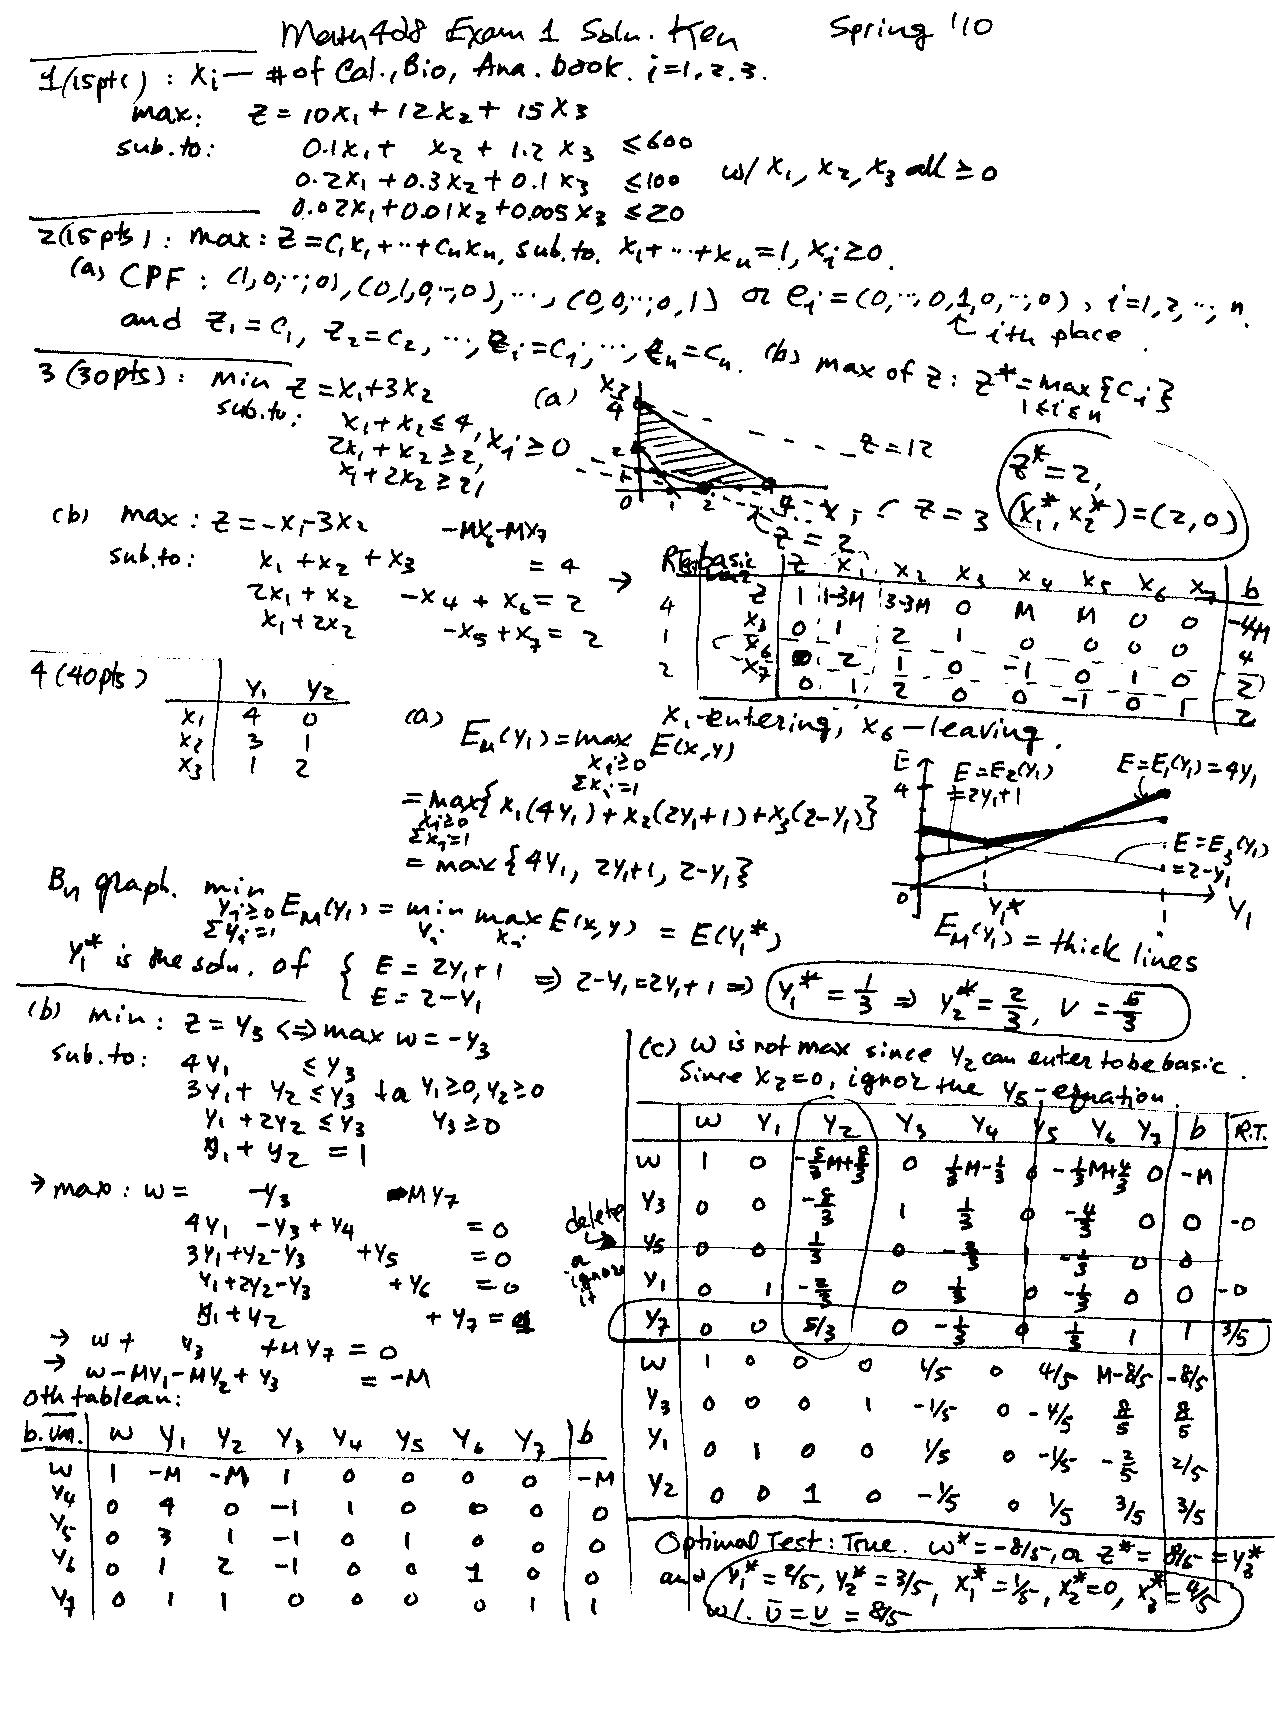 Math428 Exam 1 Soln. Key Spring '10
1 (15pts) : Xi — # of Cal., Bio, Ana. book. i=1,2,3.
max: Z = 10X1 + 12X2 + 15X3
sub.to: 0.1X1 + X2 + 1.2 X3 ≤ 600
0.2X1 + 0.3X2 + 0.1 X3 ≤ 100 w/ X1, X2, X3 all ≥ 0
0.02X1 + 0.01X2 + 0.005 X3 ≤ 20
2 (15pts) : max: Z = C1X1 + ··· + CnXn, sub.to. X1 + ··· + Xn = 1, Xi ≥ 0.
(a) CPF : (1,0,··,0), (0,1,0,··,0), ···, (0,0,··,0,1) or ei = (0,··,0,1,0,··,0), i=1,2,··,n.
↑ ith place.
and Z1 = C1, Z2 = C2, ···, Zi = Ci, ···, Zn = Cn. (b) max of Z: Z* = max {Ci}
1≤i≤n
3 (30pts) : Min Z = X1+3X2
sub.to: X1 + X2 ≤ 4,
2X1 + X2 ≥ 2, Xi ≥ 0
X1 + 2X2 ≥ 2,
(a) X2 4 2 1 0 1 2 4 X1
Z=12
Z = 3
Z = 2
Z* = 2,
(X1*, X2*) = (2,0)
(b) max : Z = -X1-3X2 -MX6-MX7
sub.to: X1 + X2 + X3 = 4
2X1 + X2 - X4 + X6 = 2
X1 + 2X2 - X5 + X7 = 2
→ R.T. basic Z X1 X2 X3 X4 X5 X6 X7 b
Z 1 1-3M 3-3M 0 M M 0 0 -4M
4 X3 0 1 2 1 0 0 0 0 4
1 X6 0 2 1 0 -1 0 1 0 2
2 X7 0 1 2 0 0 -1 0 1 2
X1-entering, X6-leaving.
4 (40pts)
Y1 Y2
X1 4 0
X2 3 1
X3 1 2
(a) EM(Y1) = max E(X,Y)
Xi≥0
ΣXi=1
= max{X1(4Y1) + X2(2Y1+1) + X3(2-Y1)}
Xi≥0
ΣXi=1
= max {4Y1, 2Y1+1, 2-Y1}
E 4 0 Y1* 1 Y1
E=E2(Y1) = 2Y1+1
E=E1(Y1)=4Y1
E=E3(Y1) = 2-Y1
EM(Y1) = thick lines
By graph. min EM(Y1) = min max E(X,Y) = E(Y1*)
Yi≥0 Yi Xi
ΣYi=1
Y1* is the soln. of { E = 2Y1+1
E = 2-Y1 ⇒ 2-Y1=2Y1+1 ⇒ Y1* = 1/3 ⇒ Y2* = 2/3, V = 5/3
(b) min : Z = Y3 ⇔ max w = -Y3
sub.to: 4Y1 ≤ Y3
3Y1 + Y2 ≤ Y3 Y1≥0, Y2≥0
Y1 + 2Y2 ≤ Y3 Y3≥0
Y1 + Y2 = 1
→ max : w = -Y3 -MY7
4Y1 -Y3 + Y4 = 0
3Y1+Y2-Y3 +Y5 = 0
Y1+2Y2-Y3 +Y6 = 0
Y1+Y2 + Y7 = 1
→ w + Y3 +MY7 = 0
→ w-MY1-MY2+Y3 = -M
0th tableau:
b.var. w Y1 Y2 Y3 Y4 Y5 Y6 Y7 b
w 1 -M -M 1 0 0 0 0 -M
Y4 0 4 0 -1 1 0 0 0 0
Y5 0 3 1 -1 0 1 0 0 0
Y6 0 1 2 -1 0 0 1 0 0
Y7 0 1 1 0 0 0 0 1 1
(c) w is not max since Y2 can enter to be basic.
Since X2=0, ignor the Y5-equation.
w Y1 Y2 Y3 Y4 Y5 Y6 Y7 b R.T.
w 1 0 -5/3M+8/3 0 1/3M-1/3 0 -1/3M+4/3 0 -M
Y3 0 0 -8/3 1 1/3 0 -4/3 0 0 -0
delete or ignore it
Y5 0 0 1/3 0 -2/3 1 -1/3 0 0
Y1 0 1 -2/3 0 1/3 0 -1/3 0 0 -0
Y7 0 0 5/3 0 -1/3 0 1/3 1 1 3/5
w 1 0 0 0 1/5 0 4/5 M-8/5 -8/5
Y3 0 0 0 1 -1/5 0 -4/5 8/5 8/5
Y1 0 1 0 0 1/5 0 -1/5 2/5 2/5
Y2 0 0 1 0 -1/5 0 1/5 3/5 3/5
Optimal Test: True. w* = -8/5, or Z* = 8/5 = Y3*
and Y1* = 2/5, Y2* = 3/5, X1* = 1/5, X2* = 0, X3* = 4/5
w/. v̄ = v = 8/5